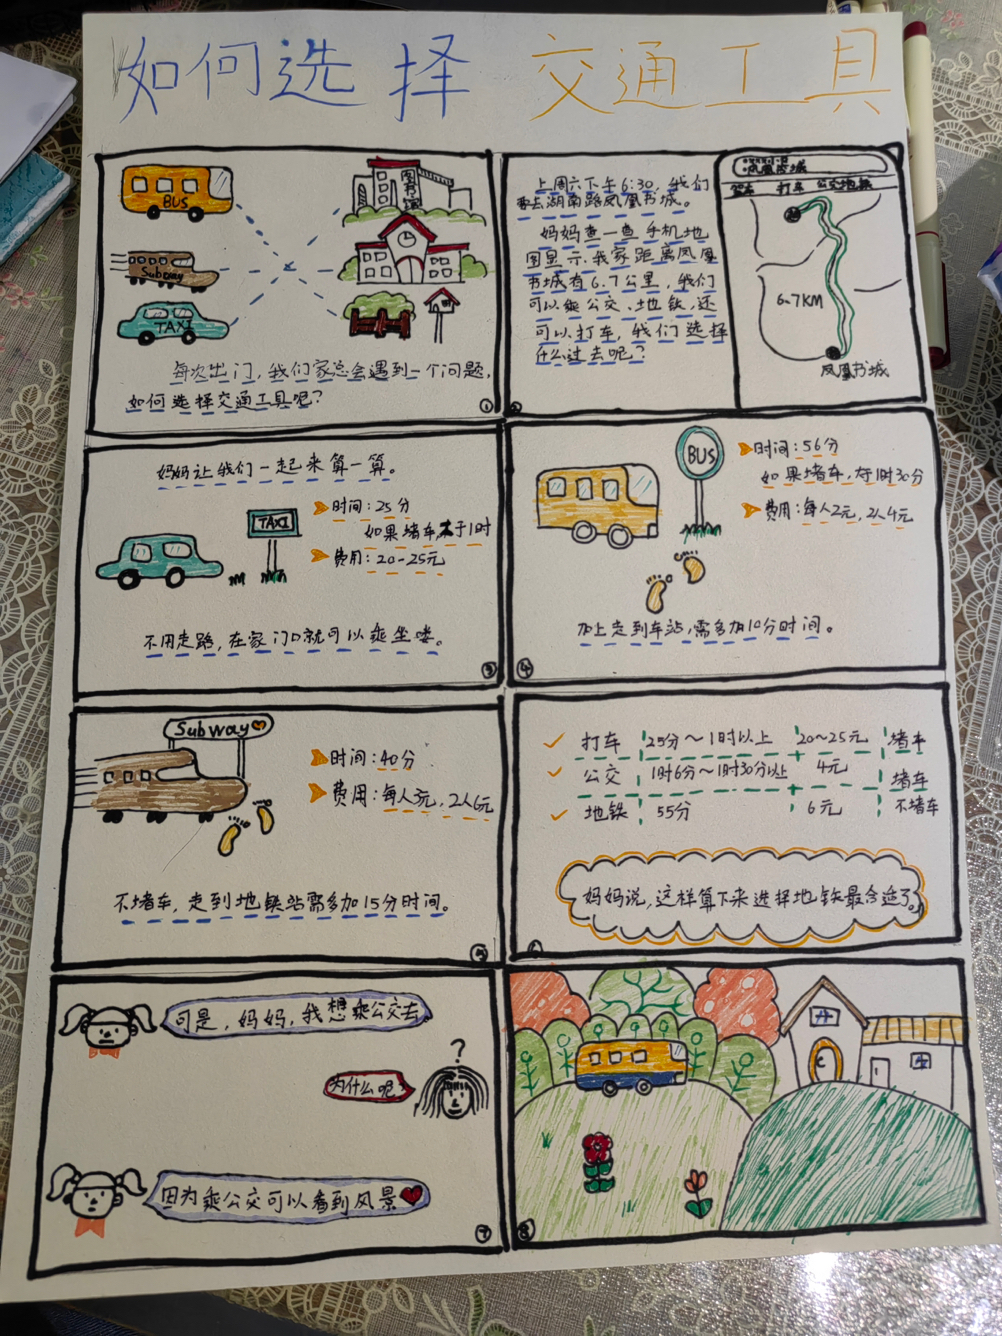 如何选择 交通工具
BUS
图书馆
Subway
TAXI
每次出门，我们家总会遇到一个问题，
如何选择交通工具呢？
①
上周六下午6:30，我们
要去湖南路凤凰书城。
妈妈查一查手机地
图显示，我家距离凤凰
书城有6.7公里，我们
可以乘公交、地铁，还
可以打车，我们选择
什么过去呢？
②
凤凰书城
驾车 打车 公交地铁
6.7KM
凤凰书城
妈妈让我们一起来算一算。
TAXI
时间：25分
如果堵车,大于1时
费用：20-25元
不用走路，在家门口就可以乘坐喽。
③
BUS
时间：56分
如果堵车，1时30分
费用：每人2元，2人4元
加上走到车站，需多加10分时间。
④
Subway
时间：40分
费用：每人3元，2人6元
不堵车，走到地铁站需多加15分时间。
⑤
打车 25分～1时以上 20～25元 堵车
公交 1时6分～1时30分以上 4元 堵车
地铁 55分 6元 不堵车
妈妈说，这样算下来选择地铁最合适了。
⑥
可是，妈妈，我想乘公交去。
?
为什么呢?
因为乘公交可以看到风景
⑦
⑧